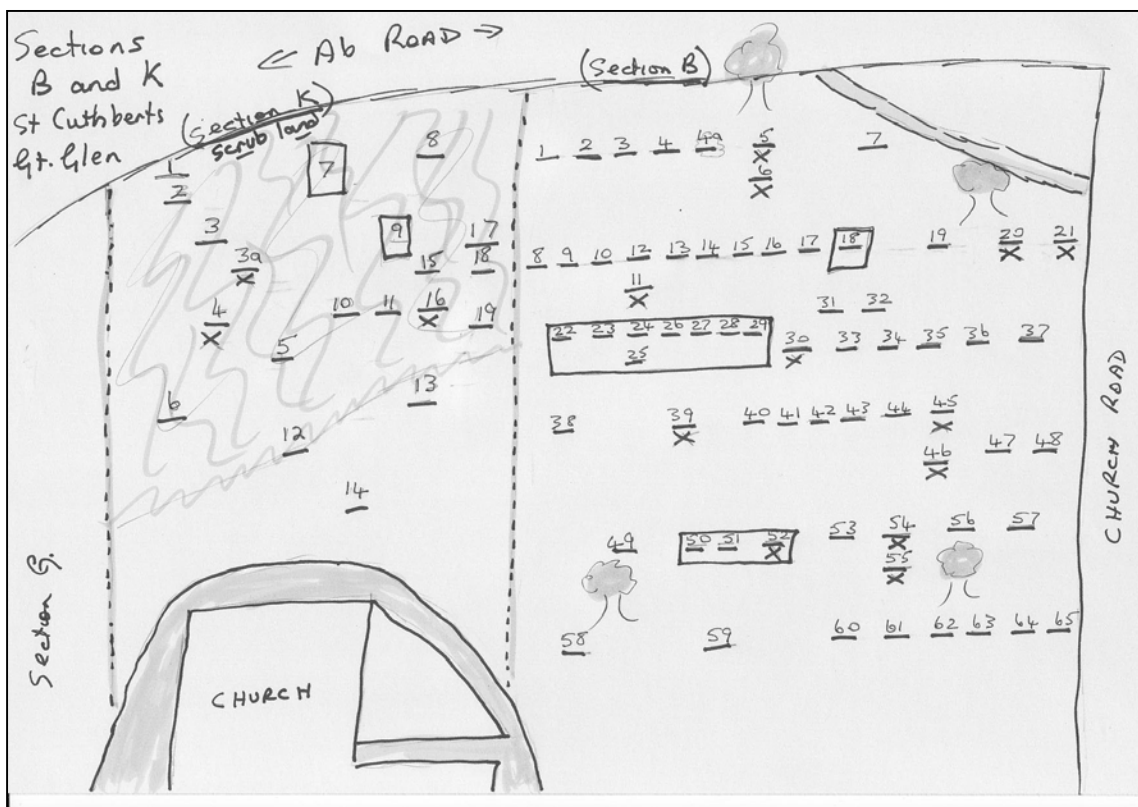 Sections
B and K
St Cuthberts
Gt. Glen
← A6 ROAD →
(Section K)
scrub land
(Section B)
1
2
3
3a
4
5
6
7
8
9
10
11
12
13
14
15
16
17
18
19
1 2 3 4 4a 5 7
6
8 9 10 12 13 14 15 16 17 18 19 20 21
11
31 32
22 23 24 26 27 28 29 30 33 34 35 36 37
25
38 39 40 41 42 43 44 45
46 47 48
49 50 51 52 53 54 56 57
55
58 59 60 61 62 63 64 65
Section G.
CHURCH
CHURCH ROAD